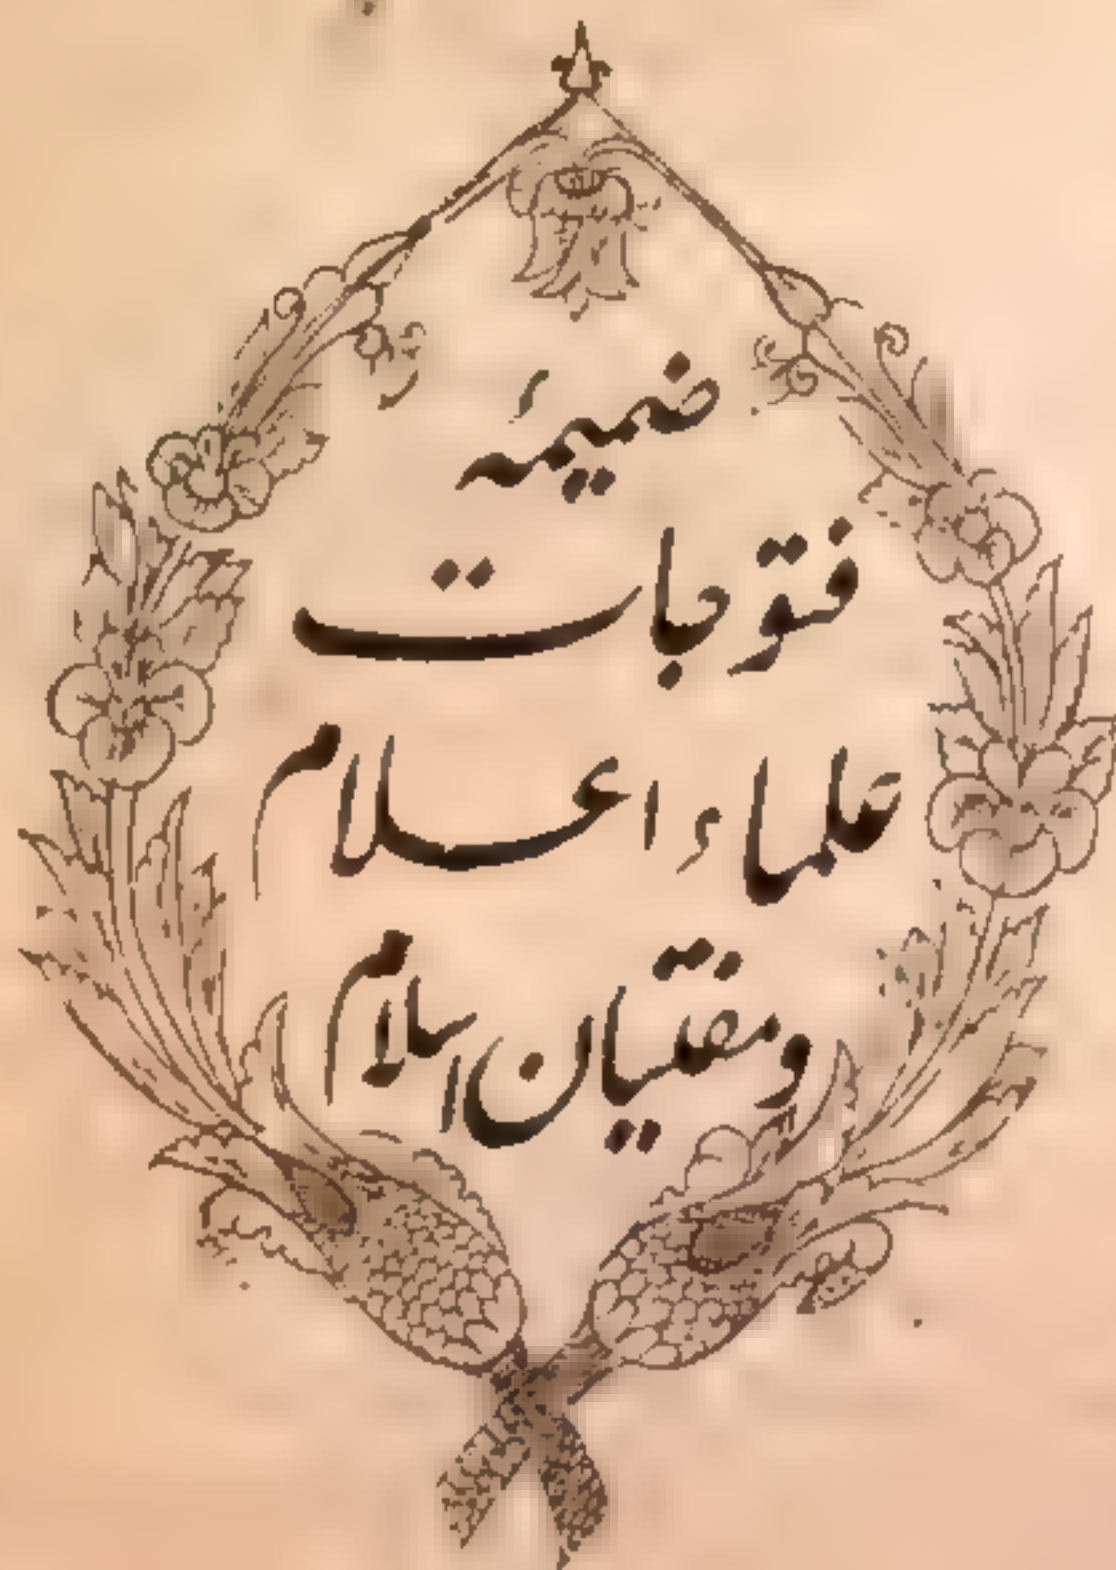 ضمیمۂ
فتوجات
علماء اعلام
ومفتیان اسلام